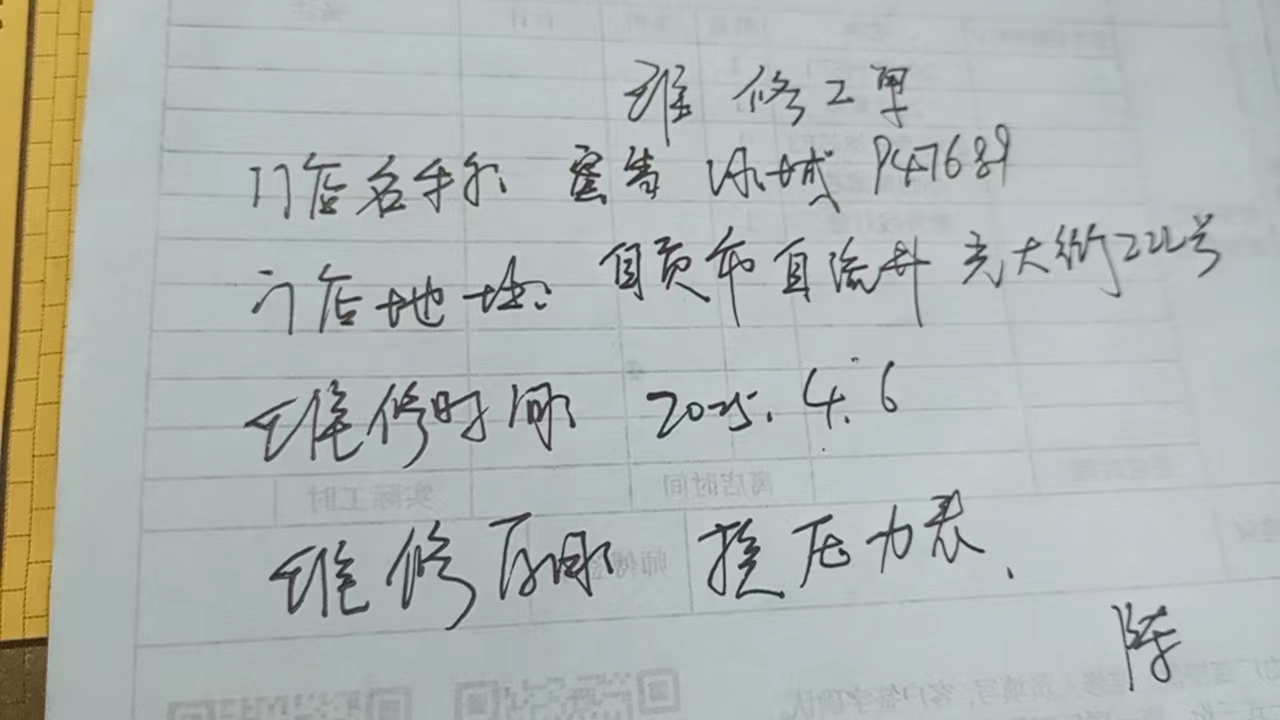 维修工单
门店名称: 蜜雪冰城 947689
门店地址: 自贡市自流井 光大街222号
维修时间: 2025.4.6
维修 换压力表.
陈
离店时间
实际工时
师傅